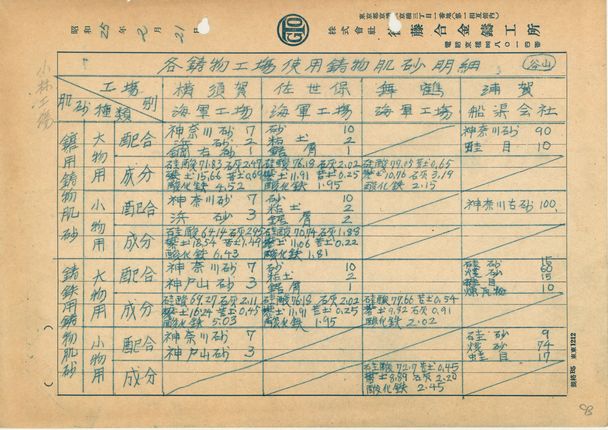 昭和25年 月21日
株式会社 藤合金鋳工所
小林工場
各鋳物工場使用鋳物肌砂明細
谷山
工場別
肌砂種類
横須賀
海軍工場
佐世保
海軍工場
舞鶴
海軍工場
浦賀
船渠会社
鋳物肌砂
大物用
配合
神奈川砂 7
浜砂 2
1
砂 10
粘土 2
鋸屑 2
神奈川砂 90
蛙目 10
成分
硅酸 71.83 石灰 2.47
礬土 15.66 苦土 0.69
酸化鉄 4.52
硅酸 76.18 石灰 2.02
礬土 11.91 苦土 0.25
酸化鉄 1.95
硅酸 79.15 苦土 0.65
礬土 10.76 石灰 3.19
酸化鉄 2.15
小物用
配合
神奈川砂 7
浜砂 3
砂 10
粘土 2
鋸屑 2
神奈川右砂 100
成分
硅酸 64.14 石灰 2.95
礬土 18.54 苦土 1.49
酸化鉄 6.43
硅酸 70.74 石灰 1.88
礬土 11.06 苦土 0.22
酸化鉄 1.81
鋳鉄用鋳物肌砂
大物用
配合
神奈川砂 7
神戸山砂 3
砂 10
粘土 2
鋸屑 1
硅砂 15
煉砂 60
15
蛙目 10
成分
硅酸 69.27 石灰 2.11
礬土 16.24 苦土 0.45
酸化鉄 5.03
硅酸 76.18 石灰 2.02
礬土 11.91 苦土 0.25
酸化鉄 1.95
硅酸 77.66 苦土 0.54
礬土 9.32 石灰 0.91
酸化鉄 2.02
小物用
配合
神奈川砂 7
神戸山砂 3
硅砂 9
煉砂 74
蛙目 17
成分
硅酸 72.7 苦土 0.45
礬土 8.89 石灰 2.20
酸化鉄 2.45